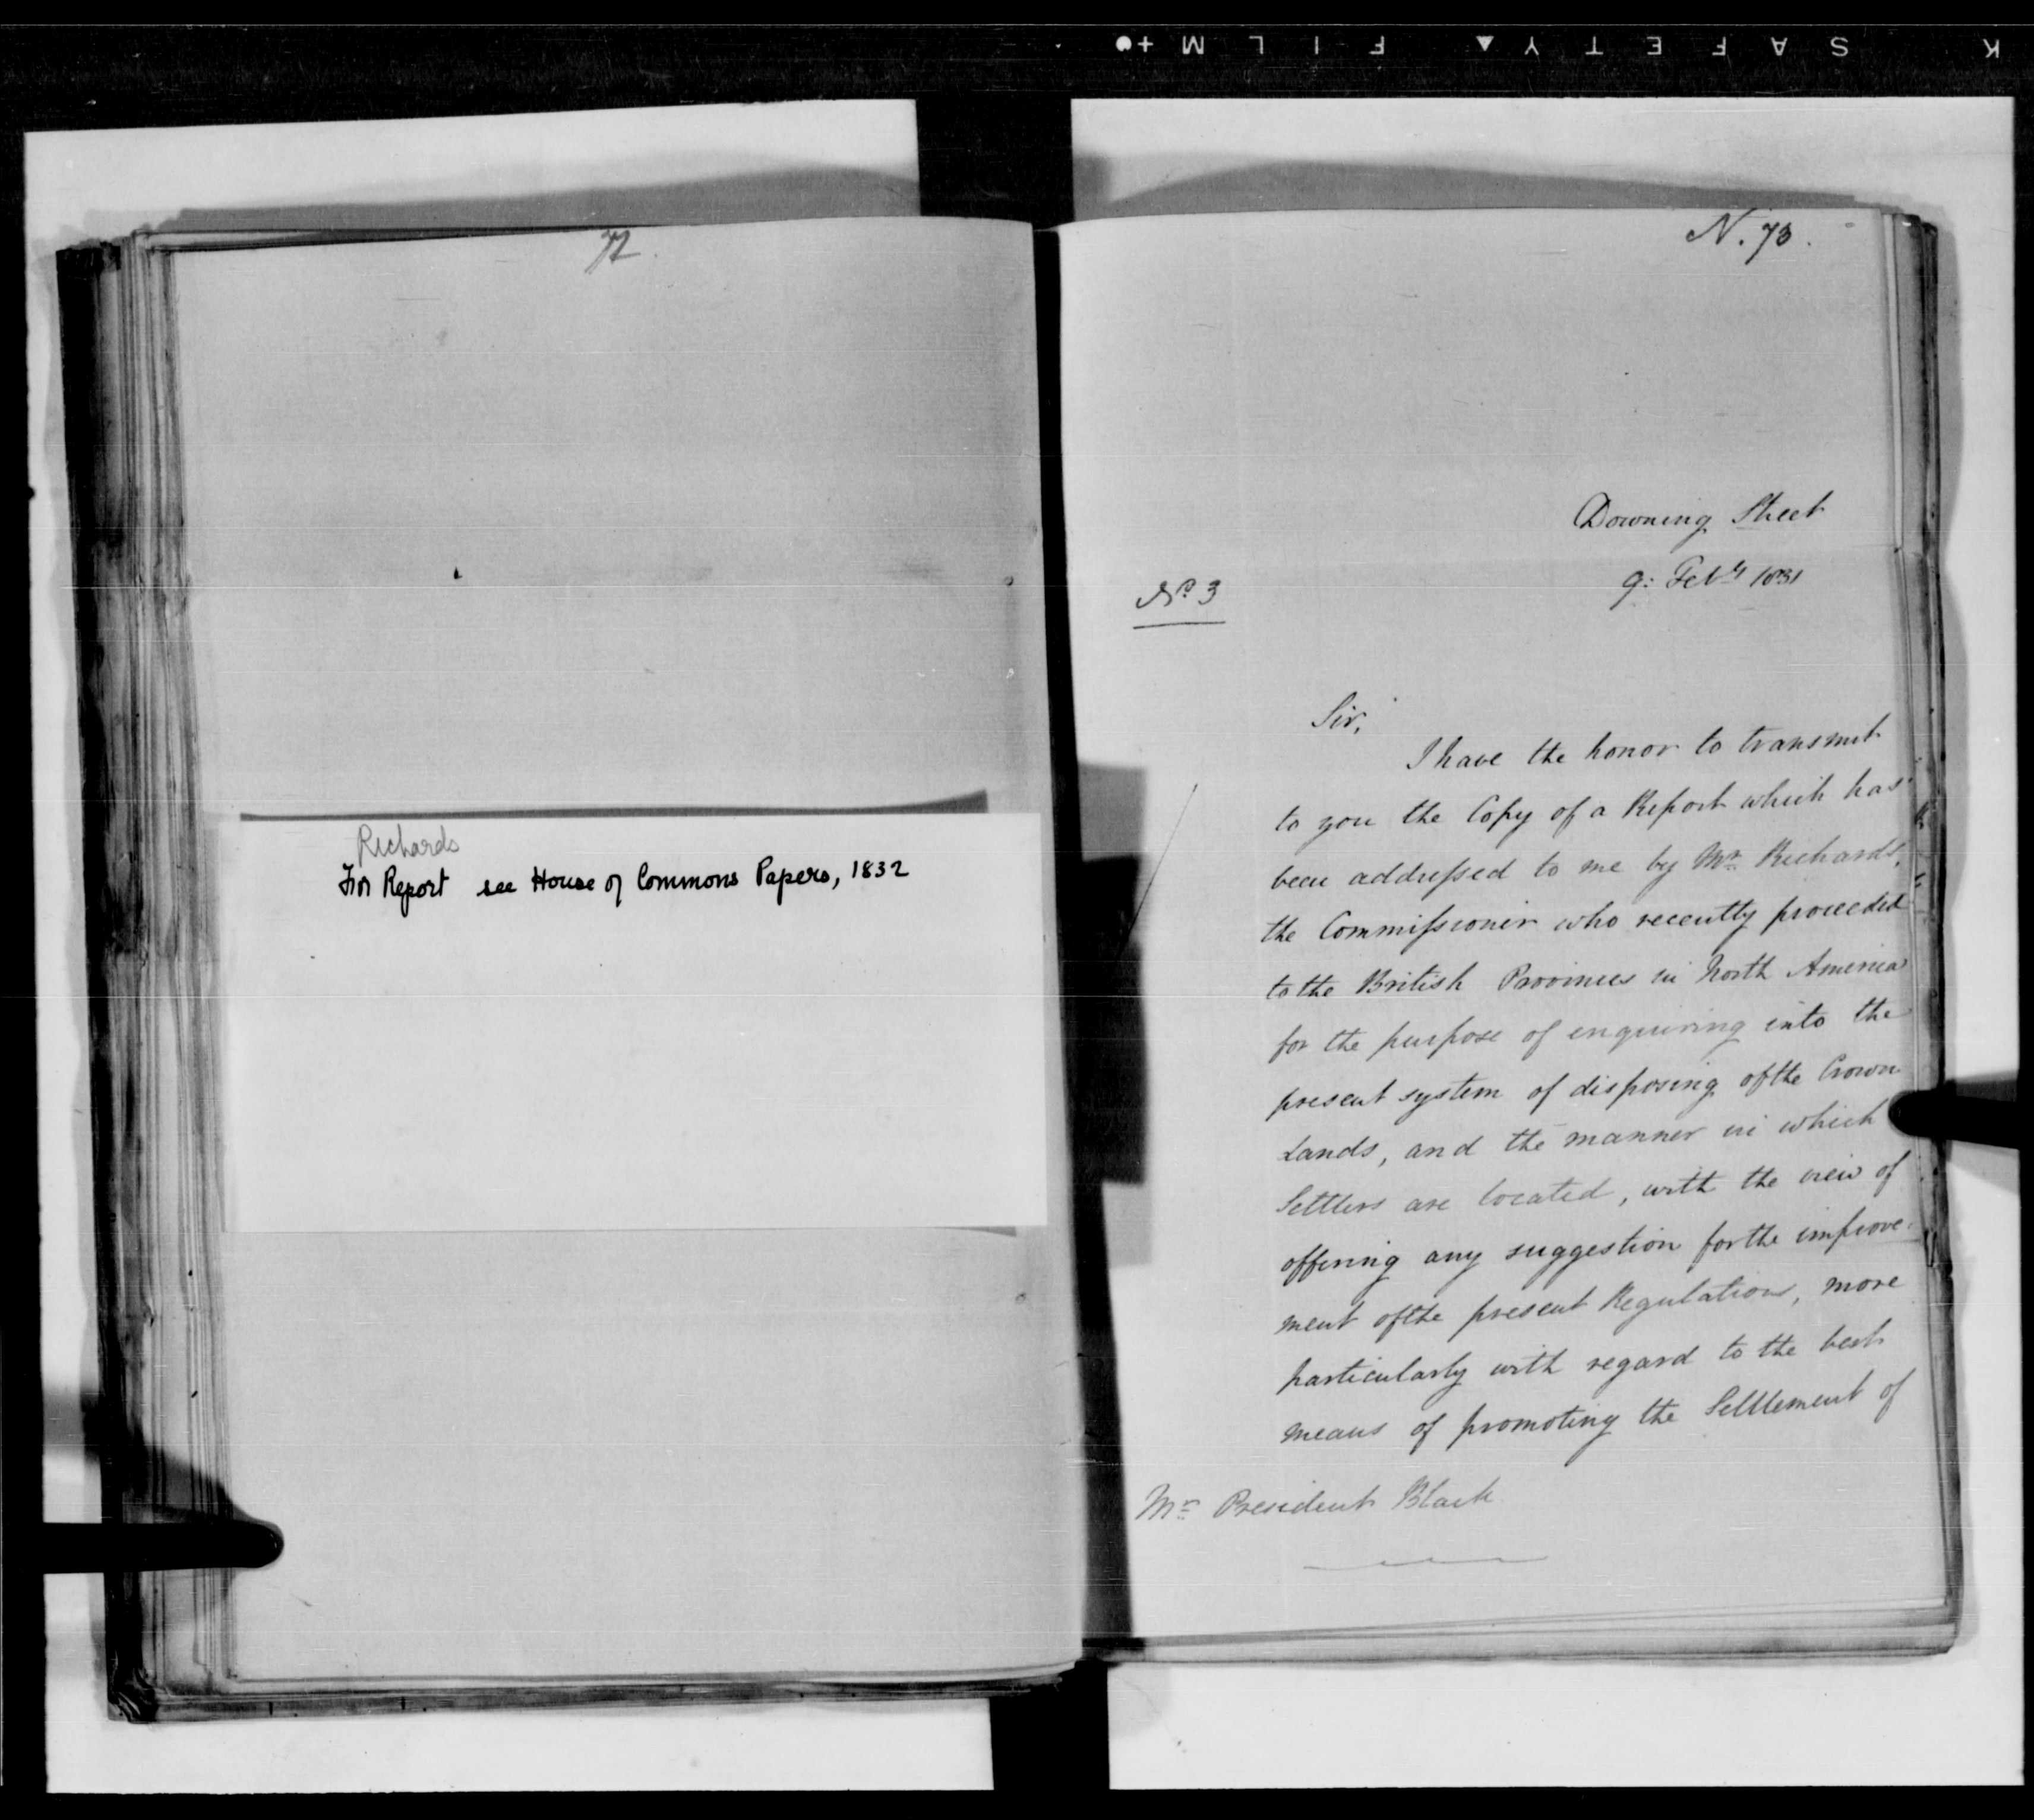 K SAFETY ▲ FILM +●
72.
Richards
For Report see House of Commons Papers, 1832
N. 73.
Downing Street
9: Feby 1831
No. 3
Sir,
I have the honor to transmit
to you the Copy of a Report which has
been addressed to me by Mr. Richards,
the Commissioner who recently proceeded
to the British Provinces in North America
for the purpose of enquiring into the
present system of disposing of the Crown
Lands, and the manner in which
Settlers are located, with the view of
offering any suggestion for the improve-
ment of the present Regulations, more
particularly with regard to the best
means of promoting the Settlement of
Mr. President Black